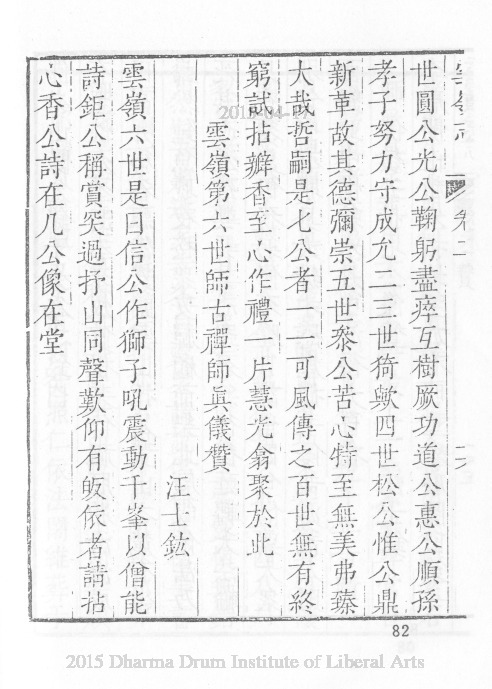 雲嶺志 卷二
世圓公光公鞠躬盡瘁互樹厥功道公惠公順孫
孝子努力守成允二三世猗歟四世松公惟公鼎
新革故其德彌崇五世叅公苦心特至無美弗臻
大哉哲嗣是七公者一一可風傳之百世無有終
窮試拈瓣香至心作禮一片慧光翕聚於此
雲嶺第六世師古禪師眞儀贊
汪士鋐
雲嶺六世是曰信公作獅子吼震動千峯以僧能
詩鉅公稱賞突過抒山同聲歎仰有皈依者請拈
心香公詩在几公像在堂
82
2015 Dharma Drum Institute of Liberal Arts